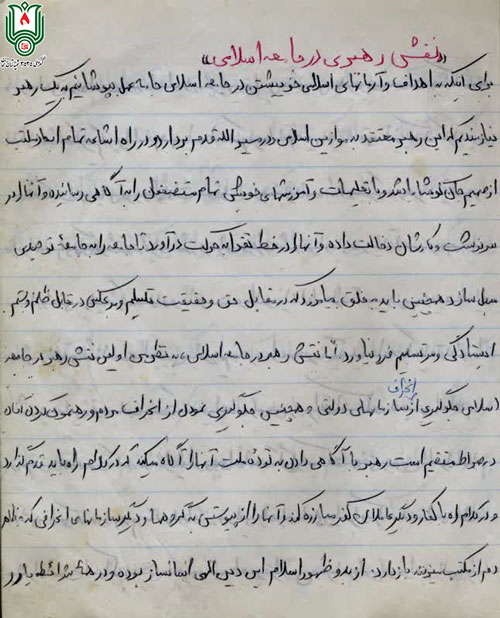 «نقش رهبری در جامعه اسلامی»
برای اینکه به اهداف و آرمانهای اسلامی خویشتن در جامعه اسلامی جامه عمل بپوشانیم به یک رهبر
نیازمندیم که این رهبر معتقد به موازین اسلامی و در مسیر الله قدم بردارد و در راه اشاعه تمام ابعاد مکتب
از صمیم جان کوشا باشد و با تعلیمات و آموزشهای خویش تمام مستضعفان را به آگاهی رسانده و آنها را در
سرنوشت و کارشان دخالت داده و آنها را در خط تقوا به حرکت درآورد تا جامعه را به جامعهٔ توحیدی
مبدل سازد همچنین باید به خلق بیاموزد که در مقابل حق و حقیقت تسلیم و برعکس در مقابل ظلم و ستم
ایستادگی و سر تسلیم فرو نیاورد. اما نقش رهبر در جامعه اسلامی، به نظر من اولین نقش رهبر در جامعه
اسلامی جلوگیری از انحراف سازمانهای دولتی و همچنین جلوگیری نمودن از انحراف مردم و رهنمون کردن آنان
در صراط مستقیم است رهبر با آگاهی دادن به توده ملت آنها را آگاه میکند که در کدام راه باید قدم گذارد
و در کدام راه با کفار و دیگر عاملان کفر مبارزه کند و آنها را از پیوستن به گروهها و دیگر سازمانهای انحرافی که بظاهر
دم از مکتب میزنند باز دارد. از بدو ظهور اسلام این دین الهی انسانساز بوده و در همهٔ شرائط یاور